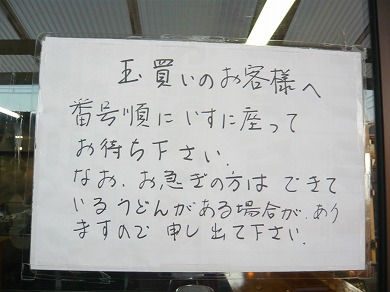 玉買いのお客様へ
番号順にいすに座って
お待ち下さい.
なお、お急ぎの方はできて
いるうどんがある場合が、あり
ますので申し出て下さい.